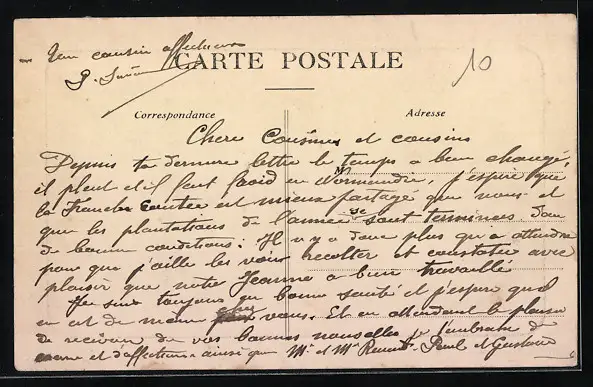 CARTE POSTALE
10
Correspondance
Adresse
Chers Cousines et cousins
Depuis ta dernière lettre le temps a bien changé,
il pleut et il fait froid en Normandie, j'espère que
la Franche Comtée est mieux partagé que nous et
que les plantations de l'année se sont terminées dans
de bonnes conditions. Il n'y a donc plus qu'a attendre
pour que j'aille les voir récolter et constater avec
plaisir que notre Jeanne a bien travaillé
Je suis toujours en bonne santé et j'espère quil
en est de même chez vous. Et en attendant le plaisir
de recevoir de vos bonnes nouvelles je t'embrasse de
et d'affection ainsi que Mr et Me Paul et Gustave
Ton cousin affectueux